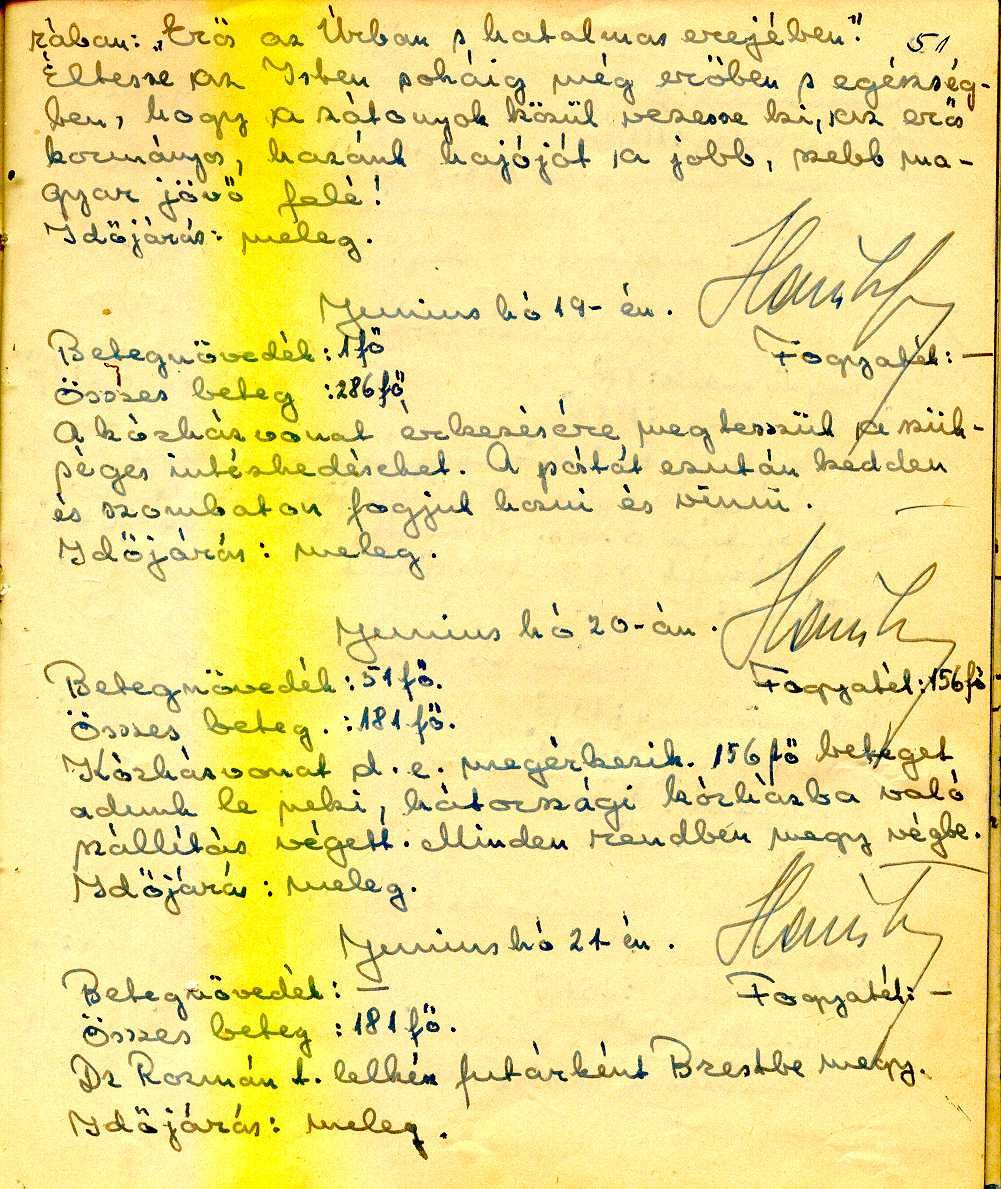 rában: „Erős az Úrban s hatalmas erejében!"
51
Éltesse az Isten soháig még erőben s egészség-
ben, hogy a zátonyok közül vezesse ki, az erős
kormányos, hazánk hajóját a jobb, szebb ma-
gyar jövő felé!
Időjárás: meleg.
Junius hó 19-én.
Betegnövedék: 1 fő
Fogyaték: —
Összes beteg : 286 fő
A kórházvonat érkezésére megtesszük a szük-
séges intézkedéseket. A postát ezután kedden
és szombaton fogjuk hozni és vinni.
Időjárás: meleg.
Junius hó 20-án.
Betegnövedék: 51 fő.
Fogyaték: 156 fő
Összes beteg. : 181 fő.
Kórházvonat d.e. megérkezik. 156 fő beteget
adunk le neki, hátországi kórházba való
szállítás végett. Minden rendben megy végbe.
Időjárás: meleg.
Junius hó 21-én.
Betegnövedék: —
Fogyaték: —
Összes beteg : 181 fő.
Dr Rozmán t. lelkész futárként Brestbe megy.
Időjárás: meleg.